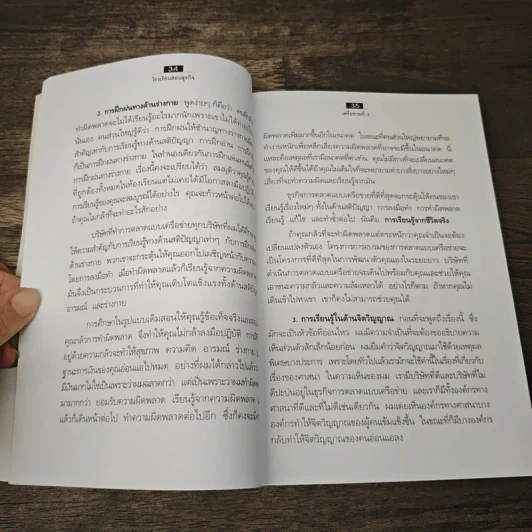 34
โรงเรียนสอนธุรกิจ
2. การฝึกฝนทางด้านร่างกาย พูดง่ายๆ ก็คือว่า คนที่
ทำผิดพลาดจะไม่ได้เรียนรู้อะไรมากนักเพราะเขาไม่ได้ทำ
นั่นเอง คนส่วนใหญ่รู้ดีว่า การฝึกฝนให้ชำนาญทางร่างกาย
สำคัญเท่ากับการเรียนรู้ทางด้านสติปัญญา การฝึกอ่าน การ
ก็เป็นการฝึกฝนทางร่างกาย ในทำนองเดียวกันการฝึกเล่น
ก็เป็นการฝึกฝนทางร่างกาย เรื่องนี้คงจะเปรียบได้ว่า สมมุติว่า
ที่ถูกต้องทั้งหมดในห้องเรียนแต่ไม่เคยได้มีโอกาสลงมือ
การเรียนรู้ของคุณจะสมบูรณ์ได้อย่างไร คุณจะก้าวหน้าต่อไป
ถ้าคุณไม่กล้าที่จะทำอะไรสักอย่าง
บริษัทที่ทำการตลาดแบบเครือข่ายทุกบริษัทที่ผมได้
ให้ความสำคัญกับการเรียนรู้ทางด้านสติปัญญาเท่าๆ กับการฝึก
ด้านร่างกาย พวกเขาจะกระตุ้นให้คุณออกไปเผชิญหน้ากับความ
โดยการลงมือทำ เมื่อทำผิดพลาดแล้วก็เรียนรู้จากความผิดพลาด
มันจึงเป็นกระบวนการที่ทำให้คุณเติบโตแข็งแรงทั้งด้านสติ
อารมณ์ และร่างกาย
การศึกษาในรูปแบบเดิมสอนให้คุณรู้ข้อเท็จจริงและสอน
คุณกลัวการทำผิดพลาด จึงทำให้คุณไม่กล้าลงมือปฏิบัติ การมีชีวิต
อยู่ด้วยความกลัวจะทำให้สุขภาพ ความคิด อารมณ์ ร่างกาย
ฐานะการเงินของคุณอ่อนแอไปหมด อย่างที่ผมได้กล่าวไปแล้ว
มีเงินมากไม่ใช่เป็นเพราะผมฉลาดกว่า แต่เป็นเพราะว่าผมทำผิด
มามากกว่า ยอมรับความผิดพลาด เรียนรู้จากความผิดพลาด
แล้วก็เดินหน้าต่อไป ทำความผิดพลาดต่อไปอีก ซึ่งก็คงจะมี
35
เครือข่ายที่ 2
ผิดพลาดเพิ่มมากขึ้นอีกในอนาคต ในขณะที่คนส่วนใหญ่พยายามที่จะ
ทำงานหนักเพื่อหลีกเลี่ยงความผิดพลาดที่อาจจะมีขึ้นในอนาคต นี่
แหละคือเหตุผลที่เรามีอนาคตที่ต่างกัน คุณไม่มีทางที่จะเปลี่ยนอนาคต
ของคุณให้ดีขึ้นได้ถ้าคุณไม่เต็มใจที่จะพยายามทำบางสิ่งบางอย่างใหม่ๆ
เสี่ยงที่จะทำความผิดและเรียนรู้จากมัน
ธุรกิจการตลาดแบบเครือข่ายที่ดีที่สุดจะกระตุ้นให้คนของเขา
เรียนรู้เรื่องใหม่ๆ ทั้งในด้านสติปัญญา การลงมือทำ การทำผิดพลาด
เรียนรู้ แก้ไข และทำซ้ำต่อไป นั่นคือ การเรียนรู้จากชีวิตจริง
ถ้าคุณกลัวที่จะทำผิดพลาดแต่ตระหนักว่าคุณจำเป็นจะต้อง
เปลี่ยนแปลงตัวเอง โครงการการอบรมของการตลาดแบบเครือข่ายจะ
เป็นโครงการที่ดีที่สุดในการพัฒนาตัวคุณเองในระยะยาว บริษัทที่
ดำเนินการตลาดแบบเครือข่ายจะเดินไปพร้อมกับคุณและช่วยให้คุณ
เอาชนะความกลัวและความล้มเหลวได้ อย่างไรก็ตาม ถ้าหากคุณไม่
เดินเข้าไปหาเขา เขาก็คงไม่สามารถช่วยคุณได้
3. การเรียนรู้ในด้านจิตวิญญาณ ก่อนที่จะพูดถึงเรื่องนี้ ซึ่ง
มักจะเป็นหัวข้อที่อ่อนไหว ผมมีความจำเป็นที่จะต้องขออธิบายความ
เห็นส่วนตัวสักเล็กน้อยก่อน ผมยืมคำว่าจิตวิญญาณมาใช้ด้วยเหตุผล
พิเศษบางประการ เพราะโดยทั่วไปแล้วเรามักจะใช้คำนี้ในเรื่องที่เกี่ยวกับ
เรื่องของศาสนา ในความเห็นของผม เรามีบริษัทที่ดีและบริษัทที่ไม่
ดีปะปนอยู่ในธุรกิจการตลาดแบบเครือข่าย และเราก็มีทั้งองค์กรทาง
ศาสนาที่ดีและที่ไม่ดีเช่นเดียวกัน ผมเคยเห็นองค์กรทางศาสนาบาง
องค์กรทำให้จิตวิญญาณของผู้คนเข้มแข็งขึ้น ในขณะที่ก็มีบางองค์กร
กลับทำให้จิตวิญญาณของคนอ่อนแอลง